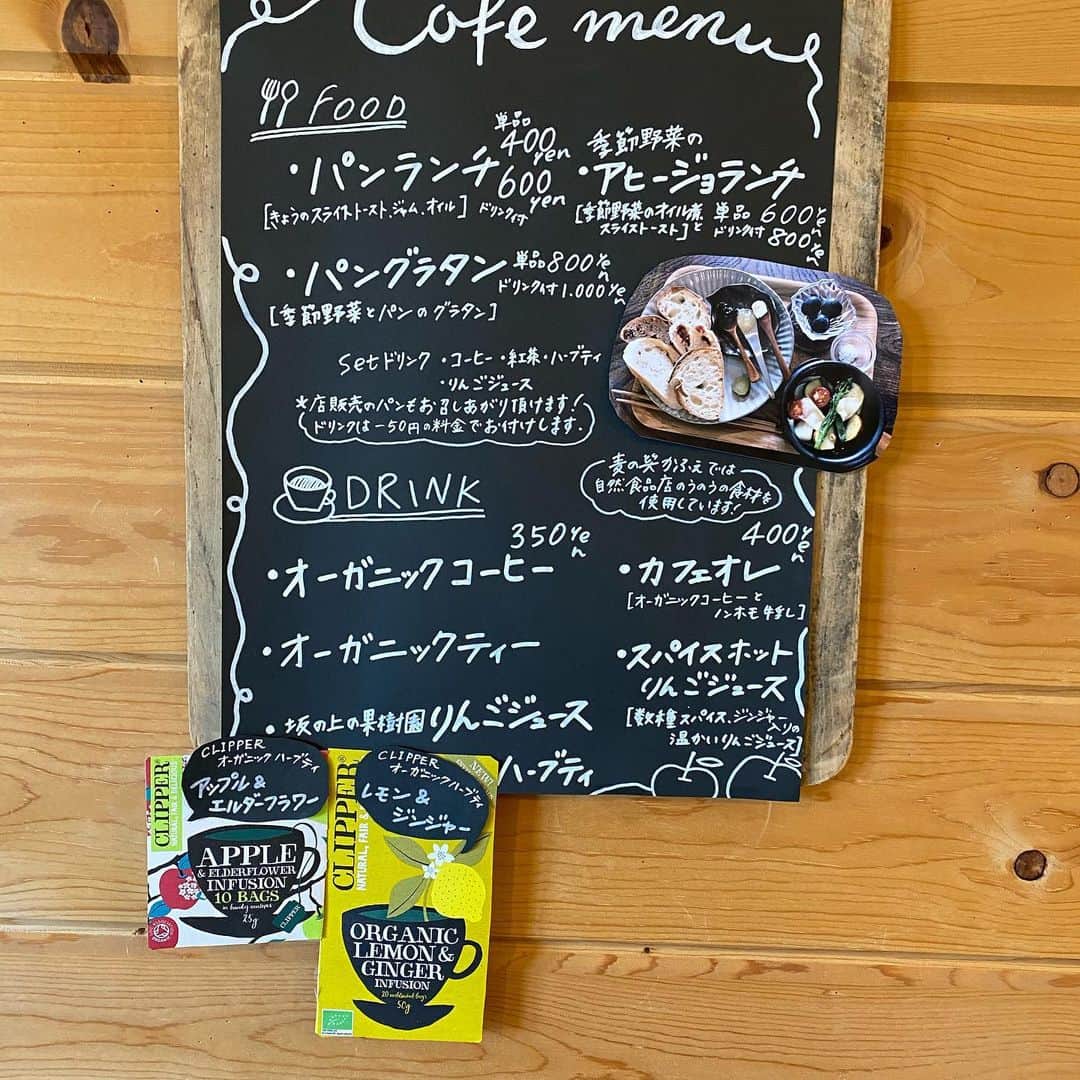 Cafe menu
FOOD
単品
400
yen
・パンランチ 600
yen
[きょうのスライストースト、ジャム、オイル] ドリンク付
季節野菜の
・アヒージョランチ
[季節野菜のオイル煮 単品 600yen
スライストースト]と ドリンク付 800yen
・パングラタン 単品 800yen
ドリンク付 1.000yen
[季節野菜とパンのグラタン]
setドリンク ・コーヒー・紅茶・ハーブティ
・りんごジュース
*店販売のパンもお召しあがり頂けます!
ドリンクは-50円の料金でお付けします.
麦の笑かふぇでは
自然食品店のうのうの食材を
使用しています!
DRINK
350yen
・オーガニックコーヒー
・オーガニックティー
・坂の上の果樹園りんごジュース
ハーブティ
400yen
・カフェオレ
[オーガニックコーヒーと
ノンホモ牛乳]
・スパイスホット
りんごジュース
[数種スパイス、ジンジャー入りの
温かいりんごジュース]
CLIPPER
オーガニックハーブティ
アップル&
エルダーフラワー
CLIPPER
NATURAL, FAIR & DELICIOUS
APPLE
& ELDERFLOWER
INFUSION
10 BAGS
25g
CLIPPER
CLIPPER
オーガニックハーブティ
レモン&
ジンジャー
NEW!
CLIPPER®
NATURAL, FAIR &
ORGANIC
LEMON &
GINGER
INFUSION
50g